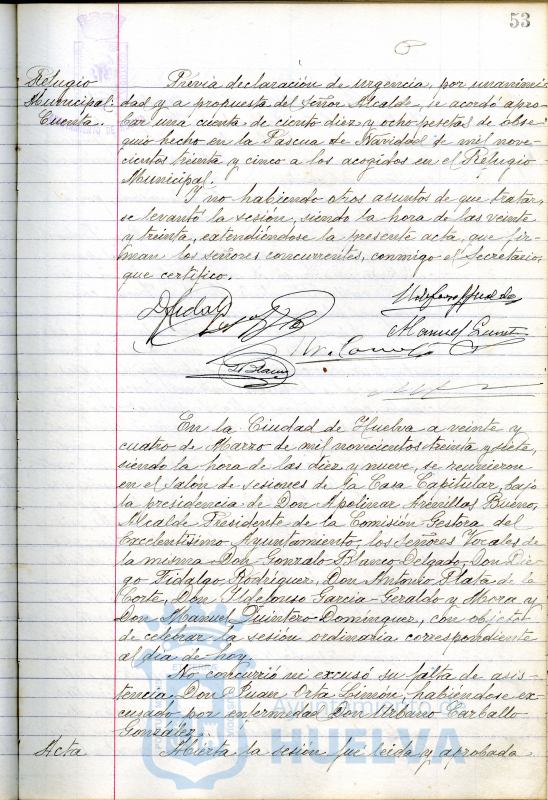 53
Refugio
Municipal.
Cuenta.
Previa declaración de urgencia, por unanimi-
dad y a propuesta del Señor Alcalde, se acordó apro-
bar una cuenta de ciento diez y ocho pesetas de obse-
quio hecho en la Pascua de Navidad de mil nove-
cientos treinta y cinco a los acogidos en el Refugio
Municipal.
Y no habiendo otros asuntos de que tratar,
se levantó la sesión, siendo la hora de las veinte
y treinta, extendiéndose la presente acta, que fir-
man los señores concurrentes, conmigo el Secretario
que certifico.
Manuel
En la Ciudad de Huelva a veinte y
cuatro de Marzo de mil novecientos treinta y siete,
siendo la hora de las diez y nueve, se reunieron
en el Salon de sesiones de la Casa Capitular, bajo
la presidencia de Don Apolinar Arenillas Bueno,
Alcalde Presidente de la Comisión Gestora del
Excelentísimo Ayuntamiento, los Señores Vocales de
la misma Don Gonzalo Blanco Delgado, Don Die-
go Fidalgo Rodríguez, Don Antonio Plata de la
Corte, Don Ildefonso García-Geraldo y Mora y
Don Manuel Quintero Domínguez, con objeto
de celebrar la sesión ordinaria correspondiente
al día de hoy.
No concurrió ni excusó su falta de asis-
tencia Don Juan Orta Limón, habiéndose ex-
cusado por enfermedad Don Urbano Carballo
González.
Acta
Abierta la sesión fue leída y aprobada
Ayuntamiento de
HUELVA